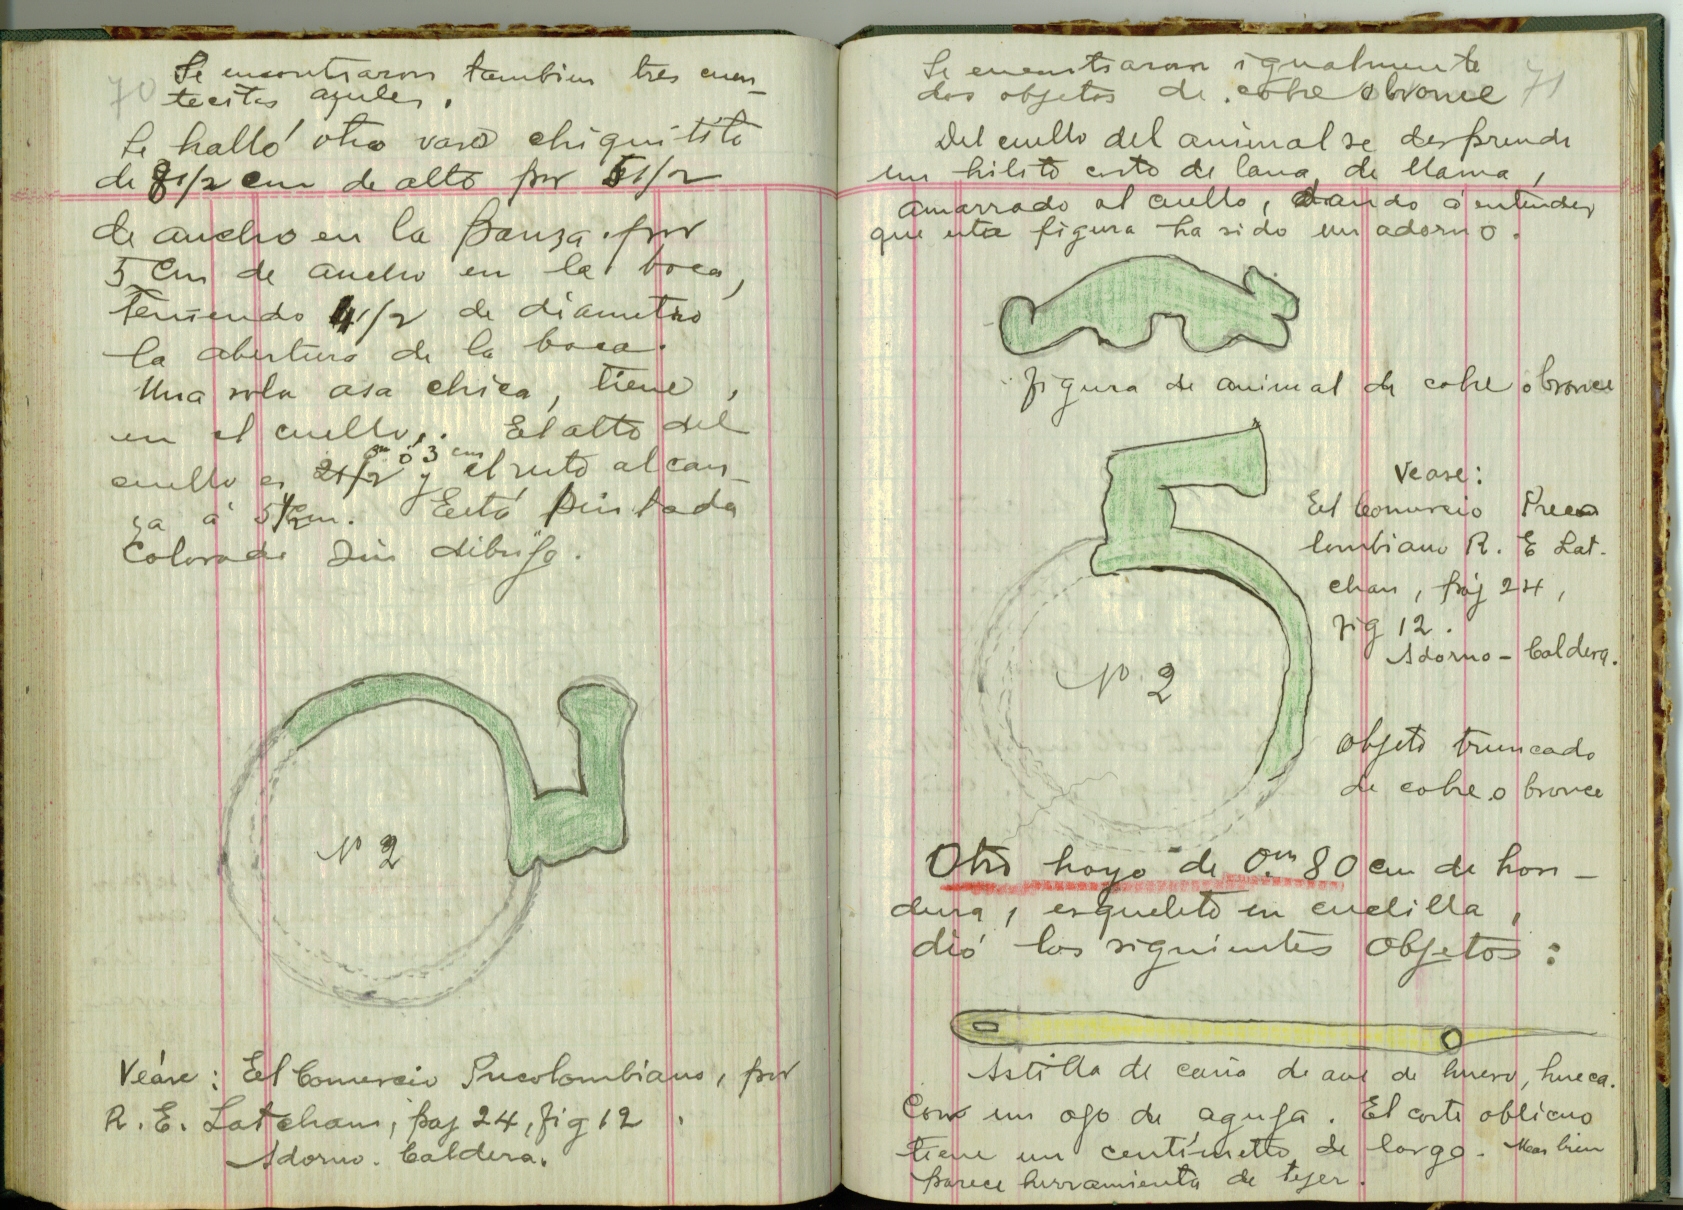 70
Se encontraron tambien tres cuen-
tecitas azules.
Se halló otro vaso chiquitito
de 8 1/2 cm de alto por 5 1/2
de ancho en la panza por
5 Cm de ancho en la boca,
Teniendo 4 1/2 de diametro
la abertura de la boca.
Una sola asa chica, tiene,
en el cuello. El alto del
cuello es 2 1/2 ó 3 cm y el resto alcan-
za á 5 1/2 cm. Está pintada
Colorado Sin dibujo.
Nº 2
Veáse: El Comercio Precolombiano, por
R. E. Latcham, paj 24, fig 12.
Adorno. Caldera.
71
Se encontraron igualmente
dos objetos de cobre o bronce
Del cuello del animal se desprende
un hilito corto de lana, de llama,
amarrado al cuello, dando á entender
que esta figura ha sido un adorno.
figura de animal de cobre o bronce
Vease:
El Comercio Preco
lombiano R. E Lat-
cham, páj 24,
fig 12.
Adorno - Caldera.
Nº 2
Objeto truncado
de cobre o bronce
Otro hoyo de 0m. 80 cm de hon-
dura, esqueleto en cuclilla,
dió los siguientes objetos:
Astilla de caña de ave de hueso, hueca.
Con un ojo de aguja. El corte oblicuo
tiene un centímetro de largo. Mas bien
parece herramienta de tejer.